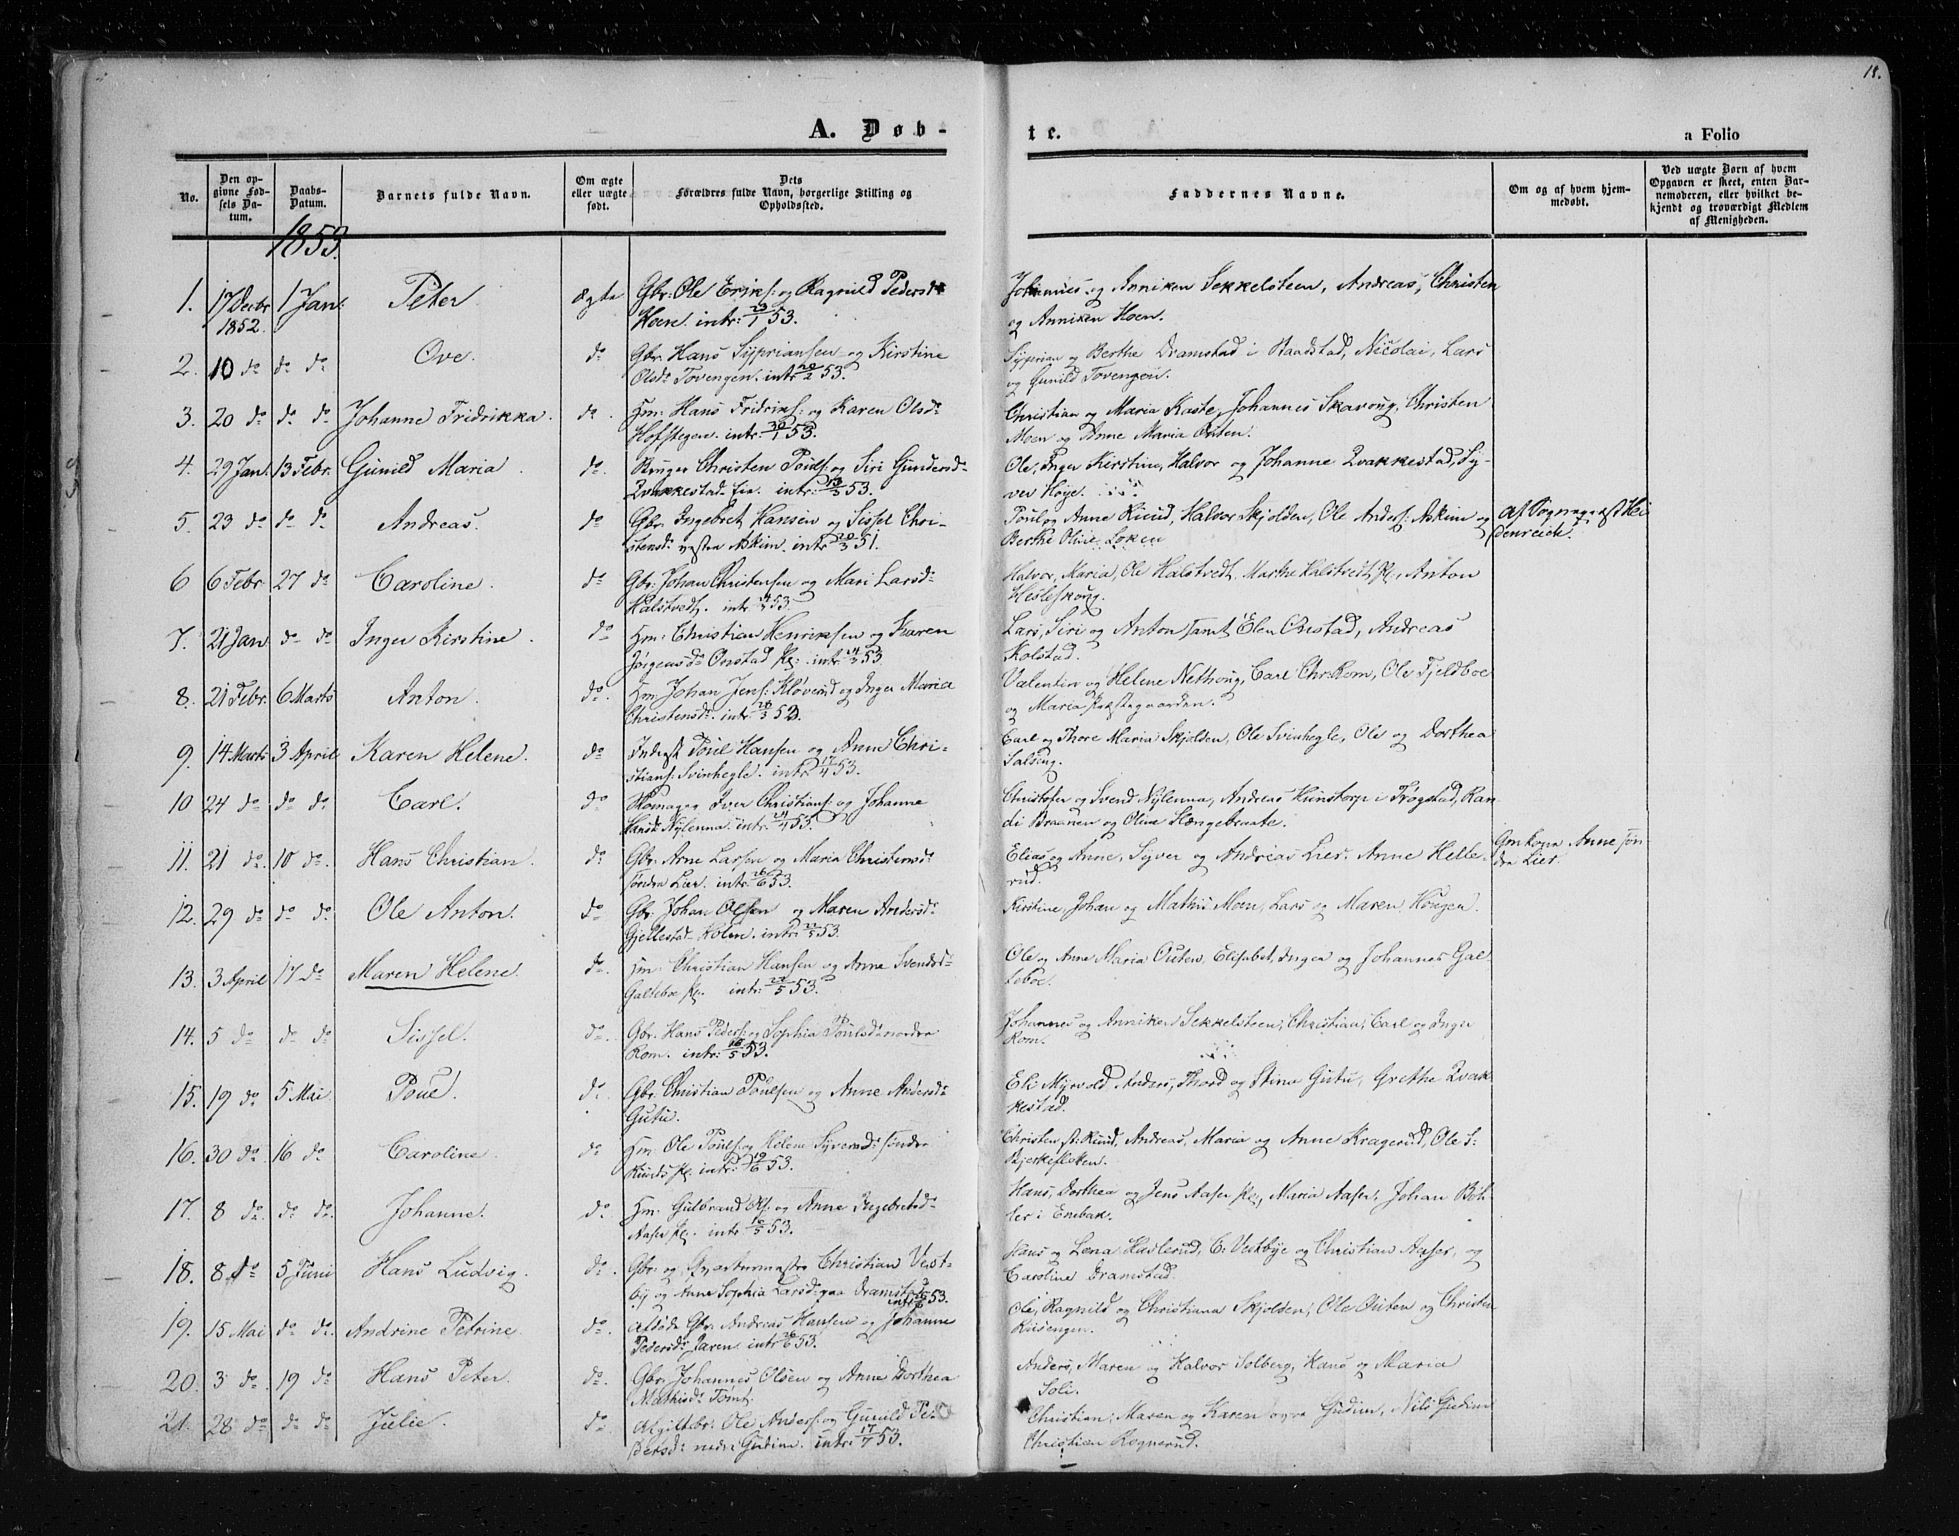 18.
A. Døb-
te.
a Folio
No.
Den op-
givne Fød-
sels Da-
tum.
Daabs-
Datum.
Barnets fulde Navn.
Om ægte
eller uægte
født.
Dets
Forældres fulde Navn, borgerlige Stilling og
Opholdssted.
Faddernes Navne.
Om og af hvem hjem-
medøbt.
Ved uægte Børn af hvem
Opgaven er skeet, enten Bar-
nemoderen, eller hvilket be-
kjendt og troværdigt Medlem
af Menigheden.
1853.
1. 17 Decbr 1 Jan. Peter ægte Gbr: Ole Eriks: og Ragnild Pedersd
1852. Hoen. intr: 23/1 53.
Johannes og Anniken Sekkelsteen, Andreas, Christen
og Anniken Hoen.
2. 10 do do do Ove. do Gbr. Hans Sypriansen og Kirstine
Olsd: Tovengen. intr 20/2 53.
Syprian og Berthe Dramstad i Haadstad, Nicolai, Lars
og Gunild Tovengen.
3. 20 do do do Johanne Fridrikka. do Hm: Hans Fridriks: og Karen Olsd:
Hofstegen. intr: 30/1 53.
Christian og Maria Kaste, Johannes Skavoug, Christen
Moen og Anne Maria Outen.
4. 29 Jan. 13 Febr. Gunild Maria do. Christen Pouls: og Siri Gundersd:
Qvakkestad eie. intr: 13/3 53.
Ole, Inger Kirstine, Halvor og Johanne Qvakkestad, Sy-
ver Høye.
5. 23 do do do Andreas. do Gbr. Ingebret Hansen og Sissel Chri-
stensd: vestra Askim. intr 20/3 51.
Poul og Anne Riiud, Halvor Skjolden, Ole Anders: Askim og
Berthe Oline Løken
af Sognepræst Hei
denreich.
6 6 Febr 27 do Caroline. do Gbr: Johan Christensen og Mari Larsd:
Halstvedt. intr 53.
Halvor, Maria, Ole Halstvedt, Marthe Halstvedt Pl:, Anton
Hesleskoug.
7. 21 Jan do do Inger Kirstine. do Hm: Christian Henriksen og Karen
Jørgensd: Onstad pl: intr: 53.
Lars, Siri og Anton samt Elen Onstad, Andreas
Kolstad.
8. 21 Febr. 6 Marts Anton do. Hm: Johan Jens: Kløverud og Inger Maria
Christensd: intr 28/3 53.
Valentin og Helene Nethoug, Carl Chr: Rom, Ole Fjeldboe
og Maria Præstegaarden.
9. 14 Marts 3 April Karen Helene. do Inderst Poul Hansen og Anne Chri-
stians: Svinhegle. intr. 17/4 53.
Carl og Thore Maria Skjolden, Ole Svinhegle, Ole og Dorthea
Salsing.
10 24 do do do Carl. do Skomager Iver Christians: og Johanne
Hansd: Nylenna. intr: 24/4 53.
Christofer og Svend Nylenna, Andreas Hunstorp i Trøgstad, Ran-
di Braanen og Oline Slængebraate.
11. 21 do. 10 do. Hans Christian. do Gbr: Arne Larsen og Maria Christensd:
søndra Lier. intr: 26/6 53.
Elias og Anne, Syver og Andreas Lier. Anne Helle-
rud.
Gmkone Anne søn-
dra Lier.
12. 29 do do do. Ole Anton. do Gbr. Johan Olsen og Maren Andersd:
Gjellestad Holen. intr: 22/5 53.
Kirstine, Johan og Mathis Moen, Lars og Maren Hougen.
13. 3 April 17 do Maren Helene. do. Hm: Christian Hansen og Anne Svendsd:
Galteboe pl. intr: 22/5 53.
Ole og Anne Maria Outen, Elisabet, Inger og Johannes Gal-
teboe.
14. 5 do do do. Sissel. do. Gbr. Hans Peders: og Sophia Poulsd: nordra
Rom. intr: 16/5 53.
Johannes og Anniken Sekkelsteen, Christian, Carl og Inger
Rom.
15. 19 do 5 Mai Poul. do. Gbr. Christian Poulsen og Anne Andersd:
Gutu.
Eli Myrvold Anders, Thord og Stina Gutu, Grethe Qvak-
kestad.
16. 30 do. 16 do Caroline. do. Hm: Ole Pouls: og Helene Syversd: søndra
Riiuds pl. intr: 19/6 53.
Christen Riiud, Andreas, Maria og Anne Kragerud, Ole S:
Bjerkefloten.
17. 8 do. do do. Johanne. do. Hm: Gulbrand Ols: og Anne Ingebretsd:
Aaser pl: intr 16/5 53.
Hans, Dorthea og Jens Aaser pl:, Maria Aaser, Johan Bøh-
ler i Enebak.
18. 8 do 5 Juni Hans Ludvig. do. Gbr: og Qvartermester Christian Vest-
by og Anne Sophia Larsd: paa Dramstad
intr: 53.
Hans og Lena Haslerud, C: Vestbye og Christian Aaser, og
Caroline Dramstad.
19. 15 Mai do do. Andrine Petrine. do. Gbr. Andreas Hansen og Johanne
Pedersd: Jaren. intr 53.
Ole, Ragnild og Christiana Skjolden, Ole Outen og Christen
Riisengen.
20. 3 do. 19 do Hans Peter. do. Gbr. Johannes Olsen og Anne Dorthea
Mathisd: Tømt.
Anders, Maren og Halvor Solberg, Hans og Maria
Soli.
21. 28 do do do Julie. do. Ole Anders: og Gunild Pe-
dersd: nedr: Gudim. intr: 17/7 53.
Christian, Maren og Karen øvre Gudim, Nils Gudim
Christian Rognerud.